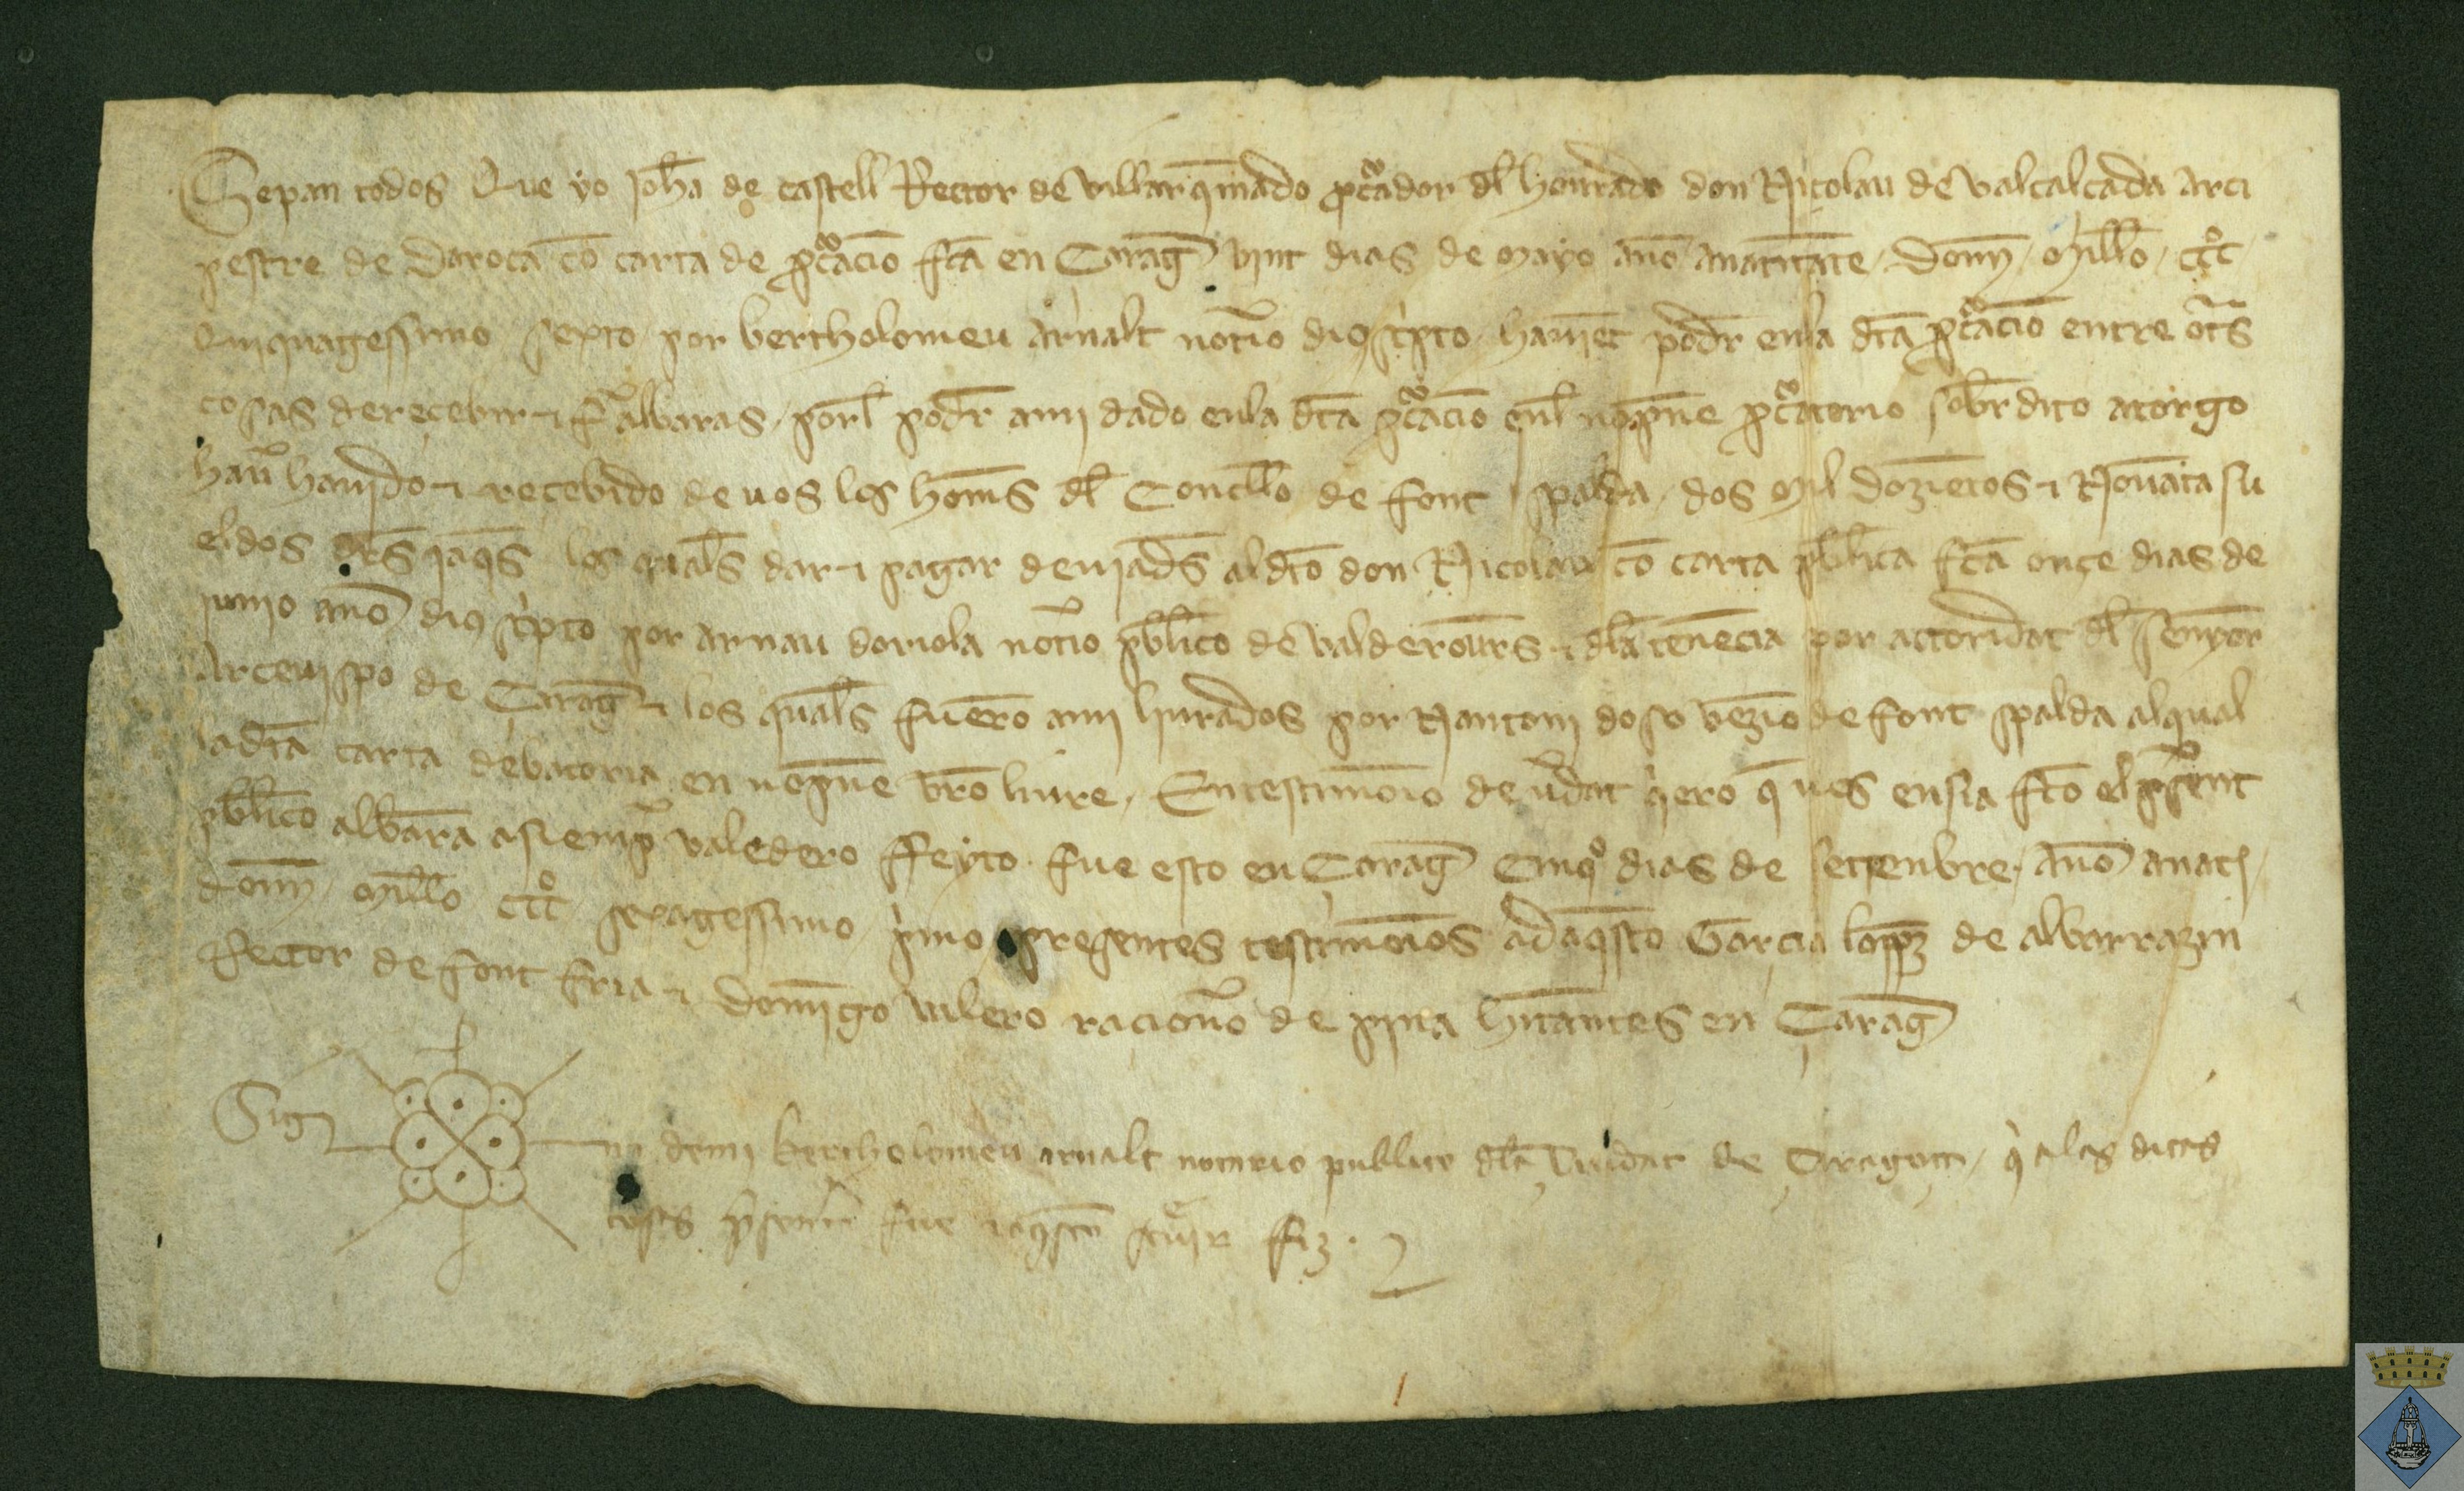 Sepan todos Que yo Joha de castell Rector de villarqmado pcador dl honrado don Nicolau de valcalcada Arci
pestre de Daroca co carta de pcacio fca en Çarag vint dias de mayo año anatitate Domj Millo CCC
Quinquagessimo sexto por bertholomeu arnalt notio dius scpto hauiet poder enla dta pcacio entre otas
cosas de reçebir ⁊ far albaras, porl poder amj dado enla dta pcacio enl nopne pcatorio sobrdito atorgo
hau hauido ⁊ reçebido de uos los homs dl Concello de font spalda dos Mil dozietos ⁊ Nouata su
eldos drs jaqs los quals dar ⁊ pagar deuiads al dto don Nicolau co carta publica fca onçe dias de
junio año dius scpto por arnau doriola notio publico de valderoures ⁊ dla tenecia por actoridat dl senyor
Arceuispo de Çarag ⁊ los quals fuero amj liurados por Nantonj doso vezio de font spalda alqual
la dta carta debitoria en nopne vro liure, En testimonio de udat qero q uos ensia fto el psent
publico albara a siempr valedero ffeyto fue esto en Çarag Cinqo dias de setienbre año anati
domj Millo CCC sexagessimo pimo presentes testimonios adaqsto Garcia lopez de albarrazin
Rector de font fria ⁊ Domigo vilero racionero de pina hitantes en Çarag
Sig
no demj bertholomeu arnalt notario publico dla Ciudat de Çaragoça, q a las ditas
cosas psent fue ⁊ aqsto scuir fiz.